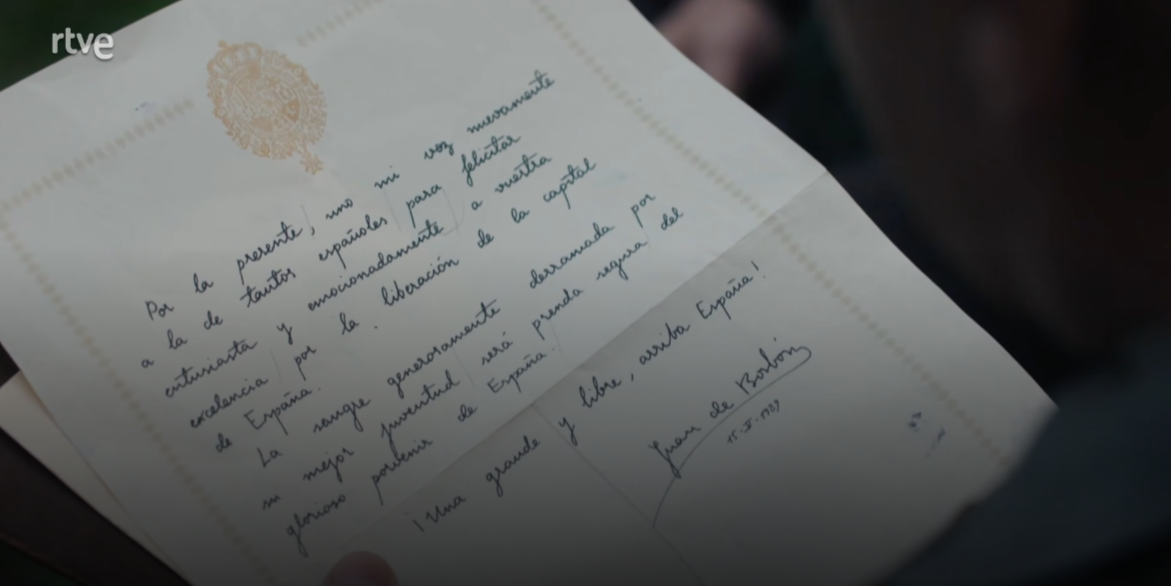 rtve
Por la presente, uno mi voz nuevamente
a la de tantos españoles para felicitar
entusiasta y emocionadamente a vuestra
excelencia por la liberación de la capital
de España.
La sangre generosamente derramada por
su mejor juventud será prenda segura del
glorioso porvenir de España.
¡Una grande y libre, arriba España!
Juan de Borbón